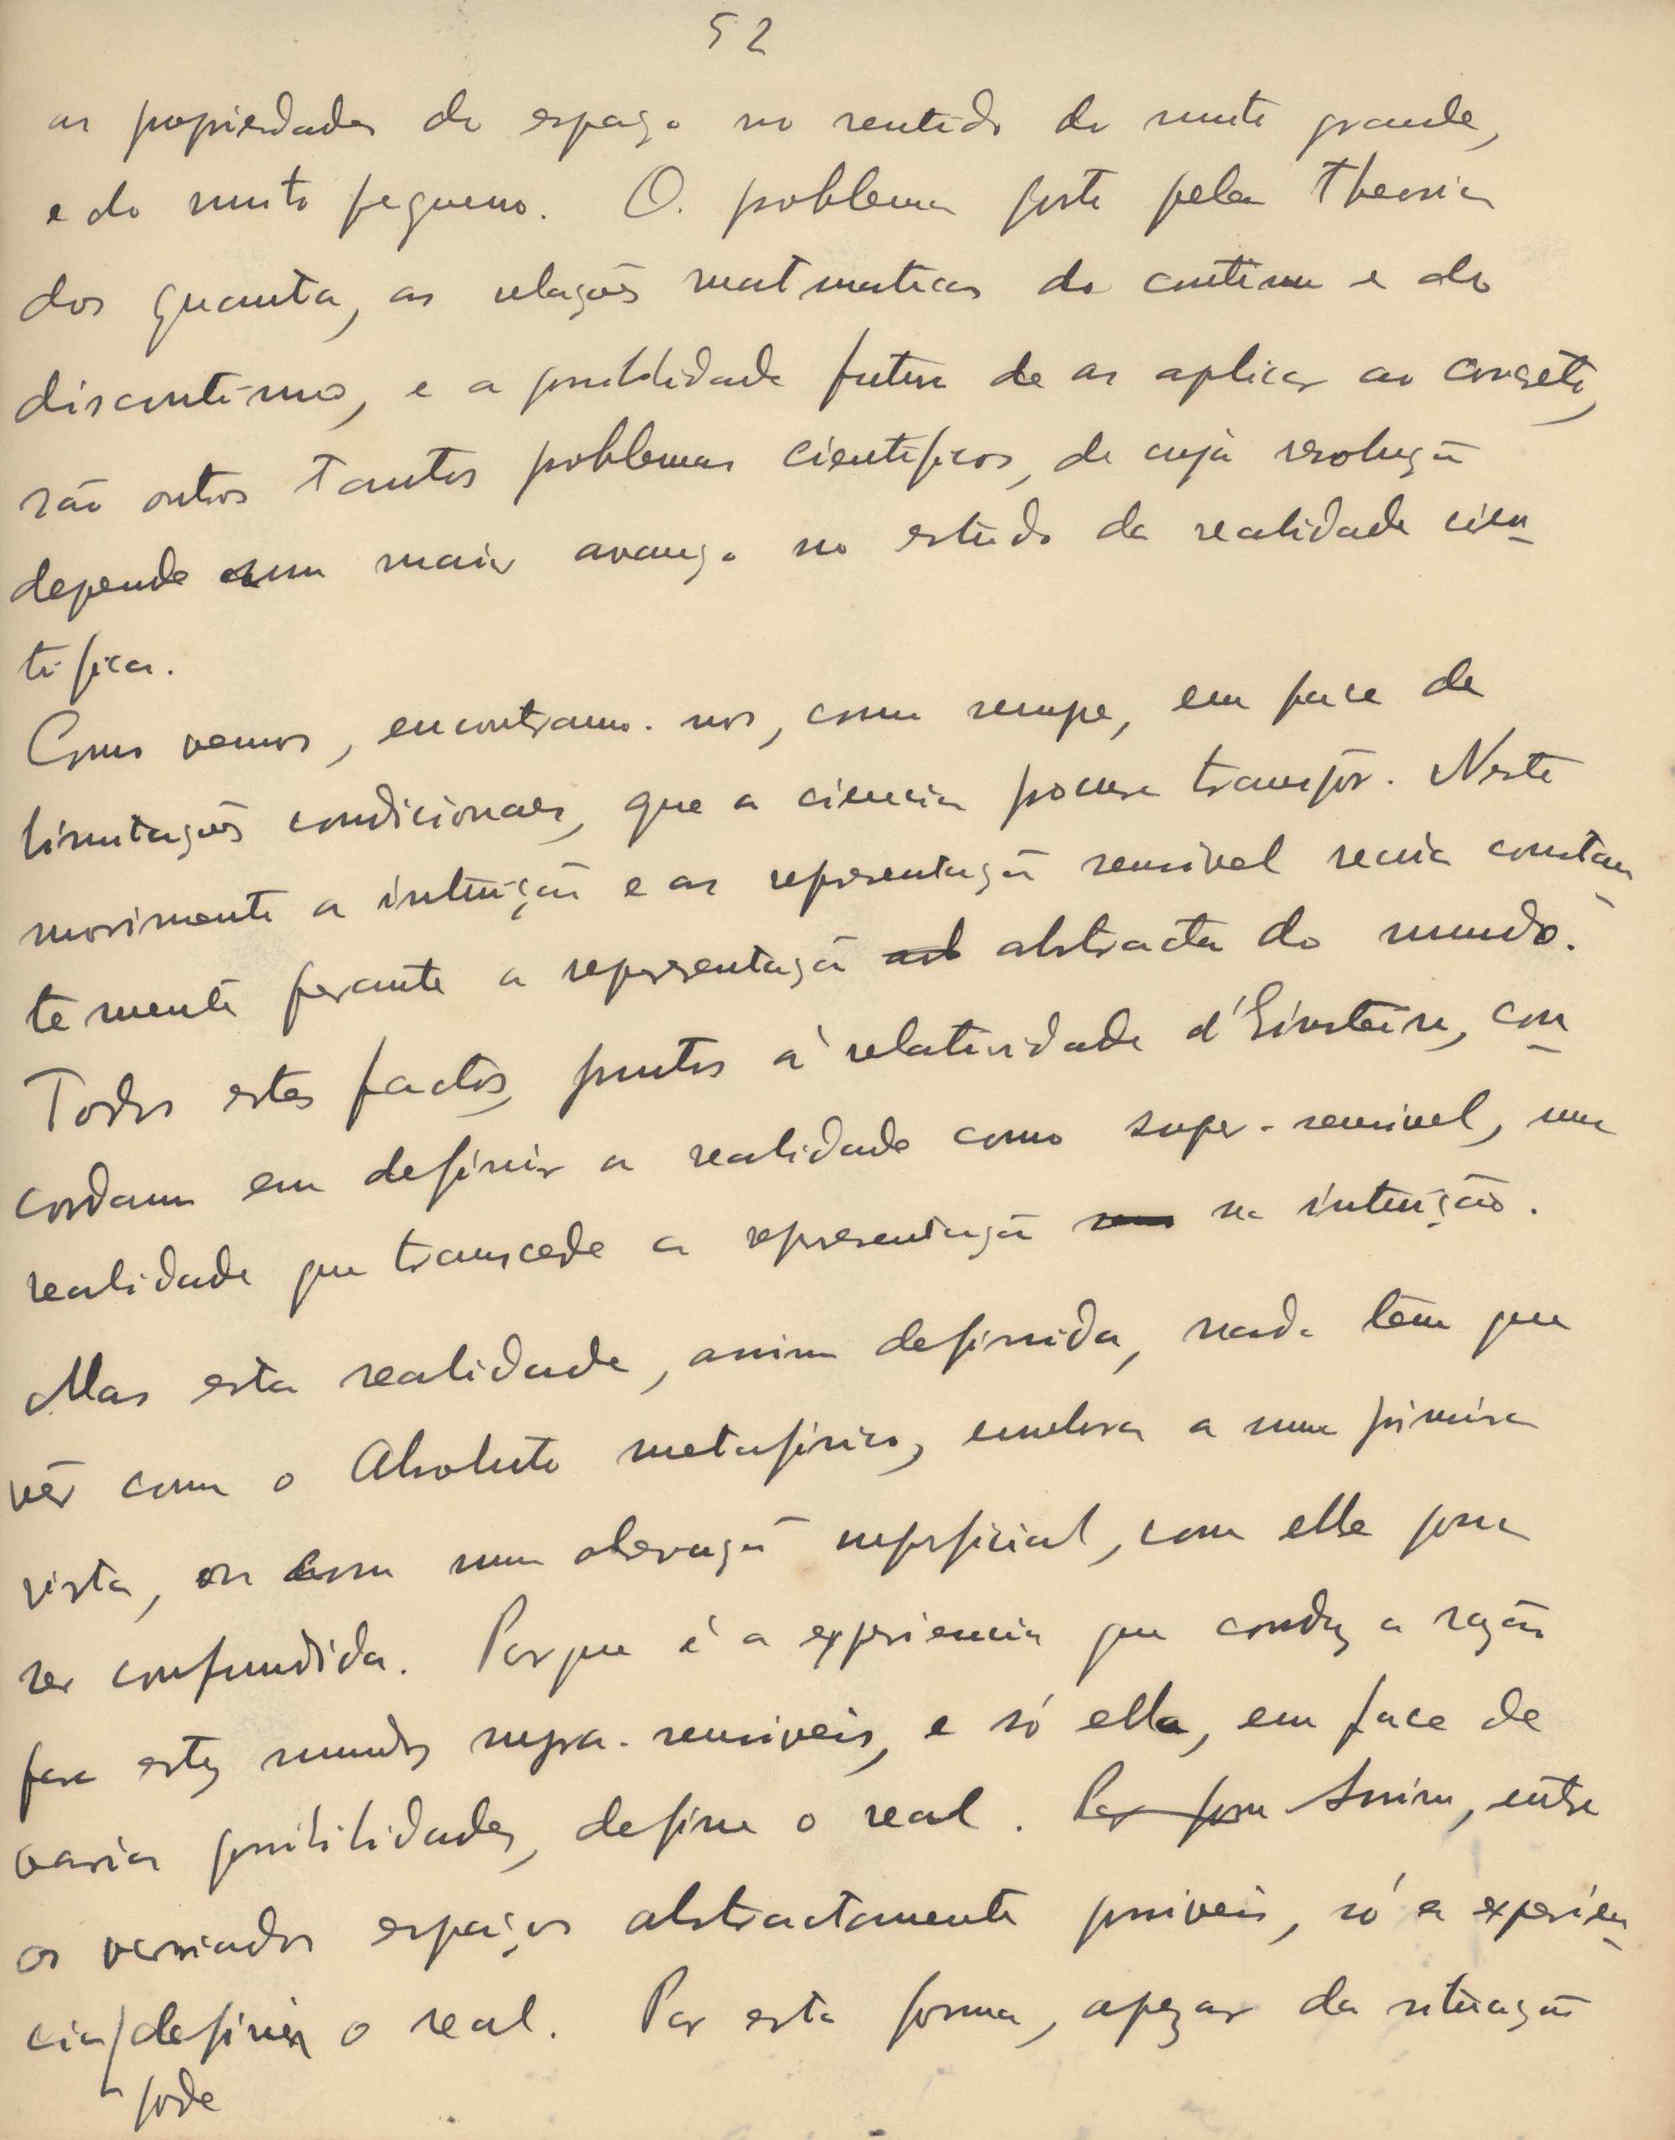 52
as propriedades do espaço no sentido do muito grande,
e do muito pequeno. O problema posto pela Theoria
dos quanta, as relações matematicas do continuo e do
discontinuo, e a possibilidade futura de as aplicar ao concreto,
são outros tantos problemas scientificos, de cuja resolução
depende um maior avanço no estudo da realidade cien-
tifica.
Como vemos, encontramo-nos, como sempre, em face de
limitações condicionaes, que a ciencia procura transpôr. Neste
movimento a intuição e as representação sensivel recúa constan-
temente perante a representação abstracta do mundo.
Todos estes factos, juntos á relatividade d'Einstein, con-
cordam em definir a realidade como super-sensivel, uma
realidade que transcede a representação na intuição.
Mas esta realidade, assim definida, nada têm que
vêr com o Absoluto metafisico, embora a uma primeira
vista, ou com uma observação superficial, com elle possa
ser confundida. Porque é a experiencia que conduz a razão
para estes mundos supra-sensiveis, e só ella, em face de
varias possibilidades, define o real. Assim, entre
os variados espaços abstractamente possiveis, só a experien-
cia definir o real. Por esta forma, apezar da situação
pode